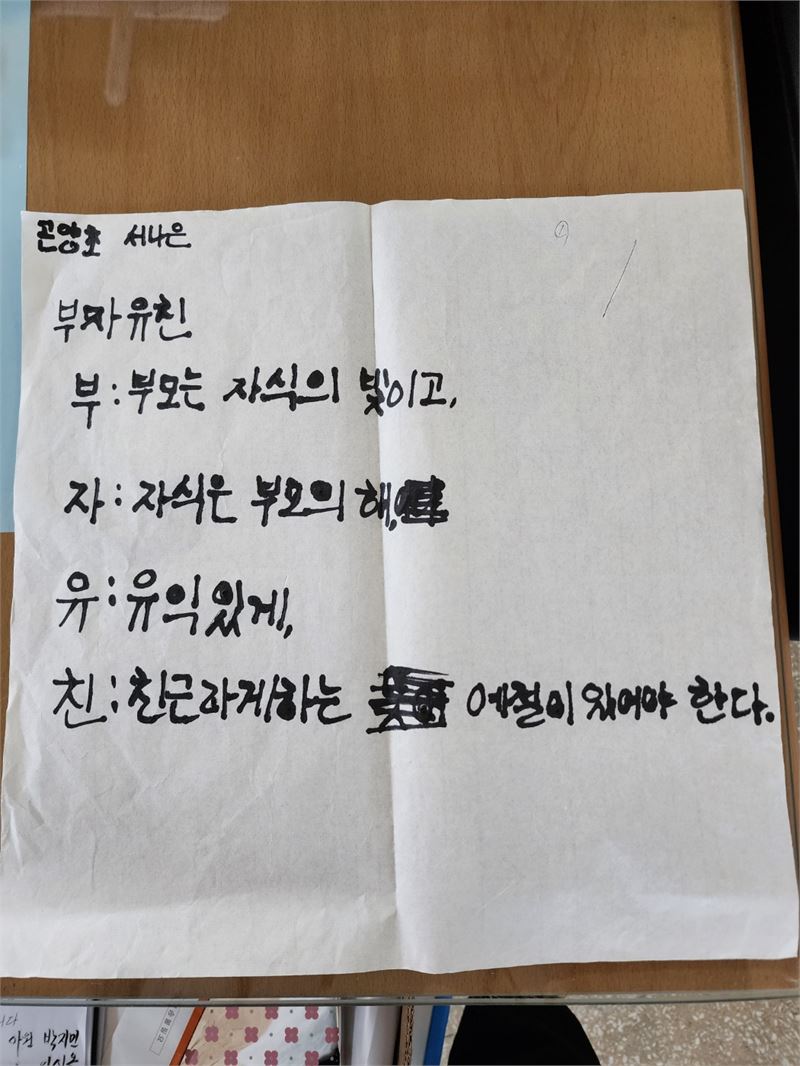 곤양초 서나은
①
부자유친
부:부모는 자식의 빛이고,
자:자식은 부모의 해,
유:유익있게,
친:친근하게하는 예절이 있어야 한다.
박지민